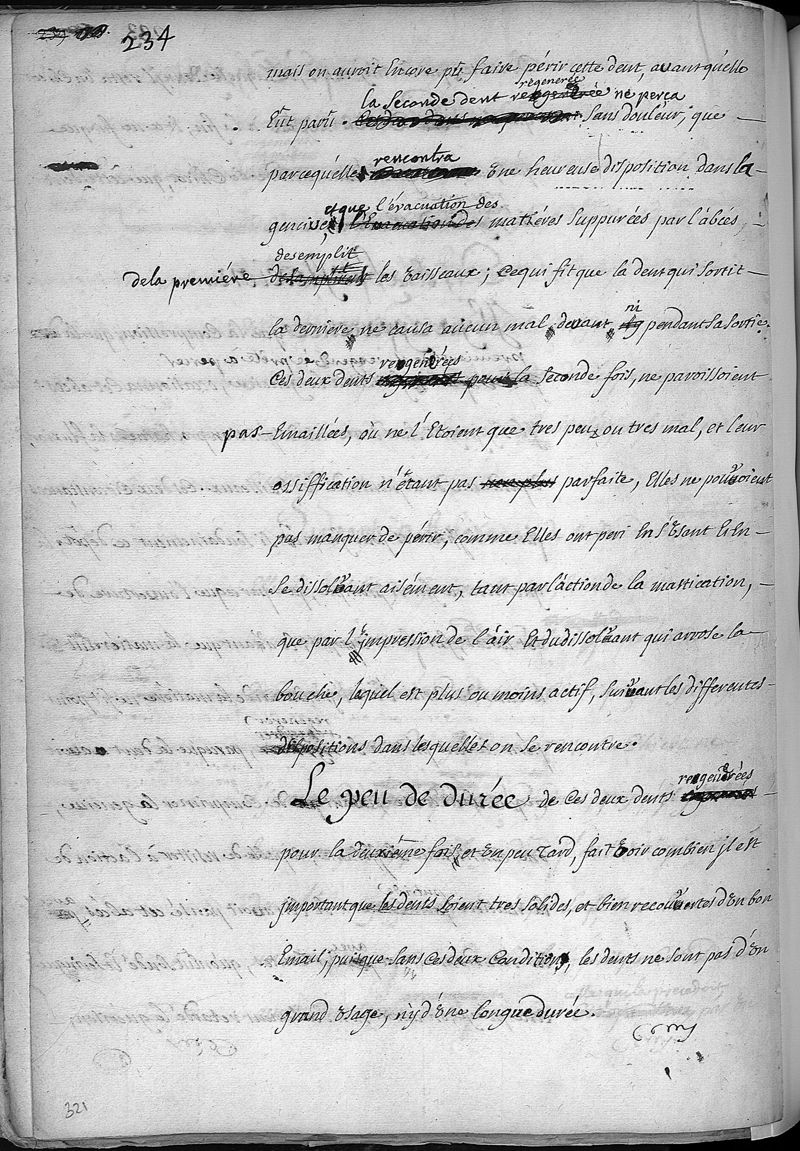 234
mais on auroit encore pû faire périr cette dent, avant quelle
regenerée
la seconde dent ne perça
Eut paru. sans douleur, que
rencontra
parcequ'elle une heureuse disposition dans la
et que l'évacuation des
gencive, matiéres suppurées par l'abcés,
desemplit
dela premiére les vaisseaux; ce qui fit que la dent qui sortit
ni
la derniere, ne causa aucun mal, devant pendant sa sortie.
regenérées
Ces deux dents la seconde fois, ne paroissoient
pas Emaillées, où ne l'Etoient que tres peu, ou tres mal, et leur
ossiffication n'étant pas parfaite, Elles ne pouvoient
pas manquer de périr, comme Elles ont peri En s'usant Et En
se dissolvant aisément, tant par l'action de la mastication,
que par l'jmpression de l'air Et du dissolvant qui arrose la
bouche, laquel est plus ou moins actif, suivant les differentes
dispositions dans lesquelles on se rencontre.
regenérées
Le peu de durée de ces deux dents
pour la deuxiéme fois, et un peu tard, fait voir combien jl est
jmportant que les dents soient tres solides, et bien recouvertes d'un bon
Email, puisque sans ces deux conditions, les dents ne sont pas d'un
grand usage, n'y d'une longue durée.
321